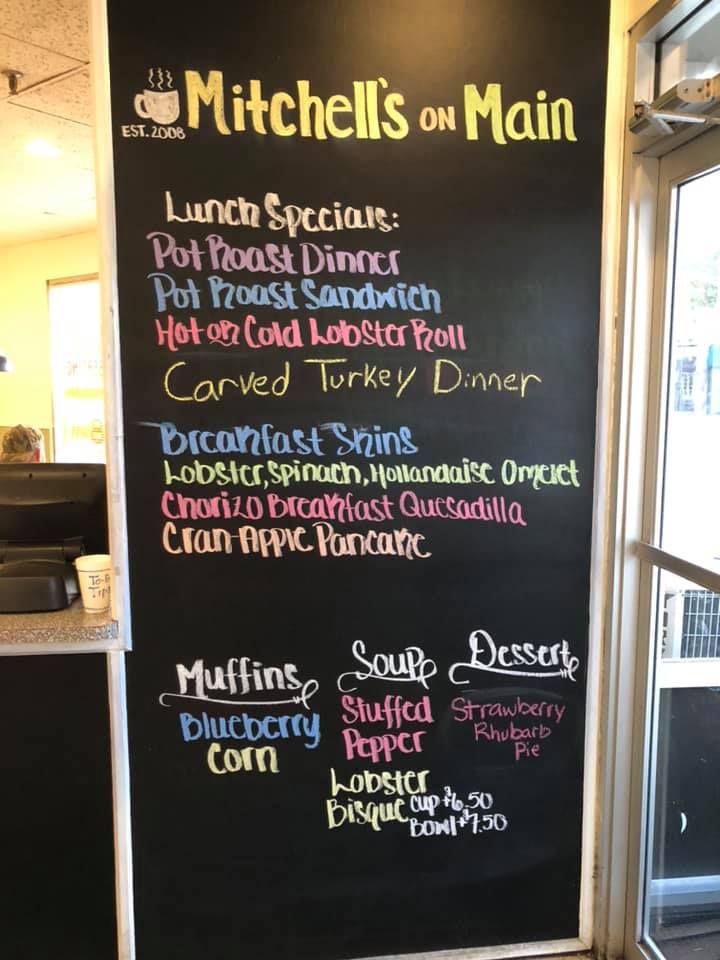 EST. 2008
Mitchell's ON Main
Lunch Specials:
Pot Roast Dinner
Pot Roast Sandwich
Hot or Cold Lobster Roll
Carved Turkey Dinner
Breakfast Skins
Lobster, Spinach, Hollandaise Omelet
Chorizo Breakfast Quesadilla
Cran-Apple Pancake
Muffins
Blueberry
Corn
Soup
Stuffed
Pepper
Lobster
Bisque Cup $6.50
Bowl $7.50
Dessert
Strawberry
Rhubarb
Pie